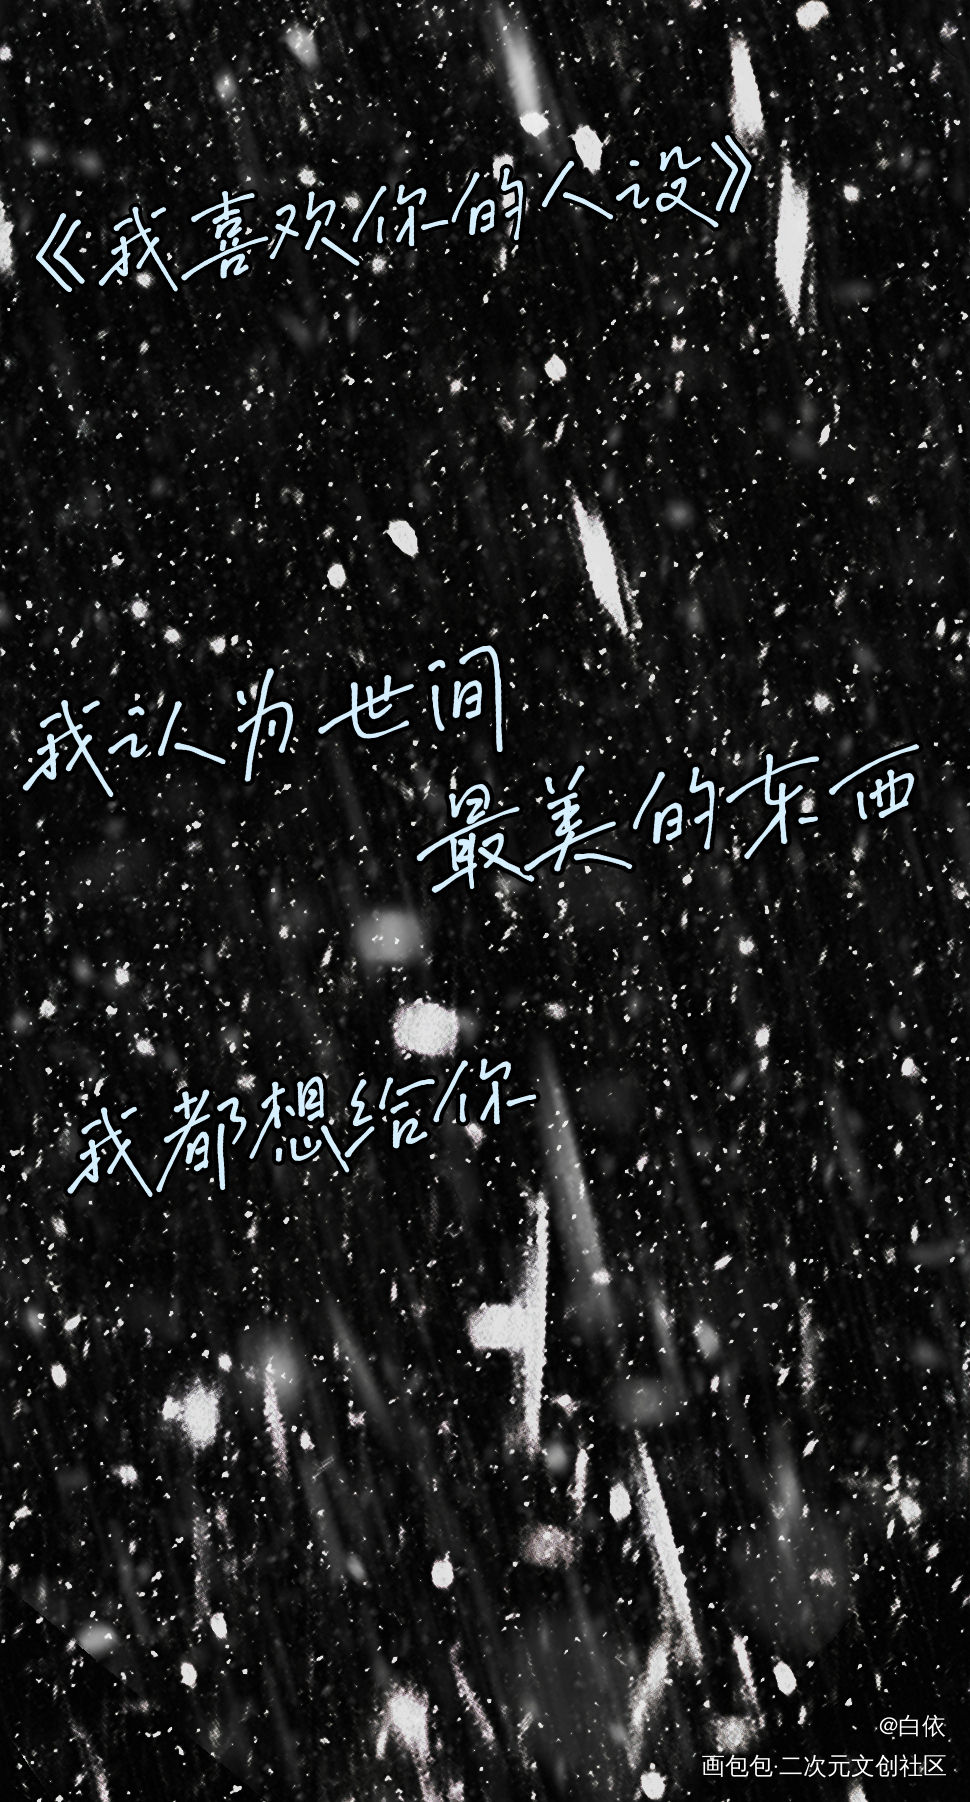 《我喜欢你的人设》
我认为世间
最美的东西
我都想给你
@白依
画包包·二次元文创社区